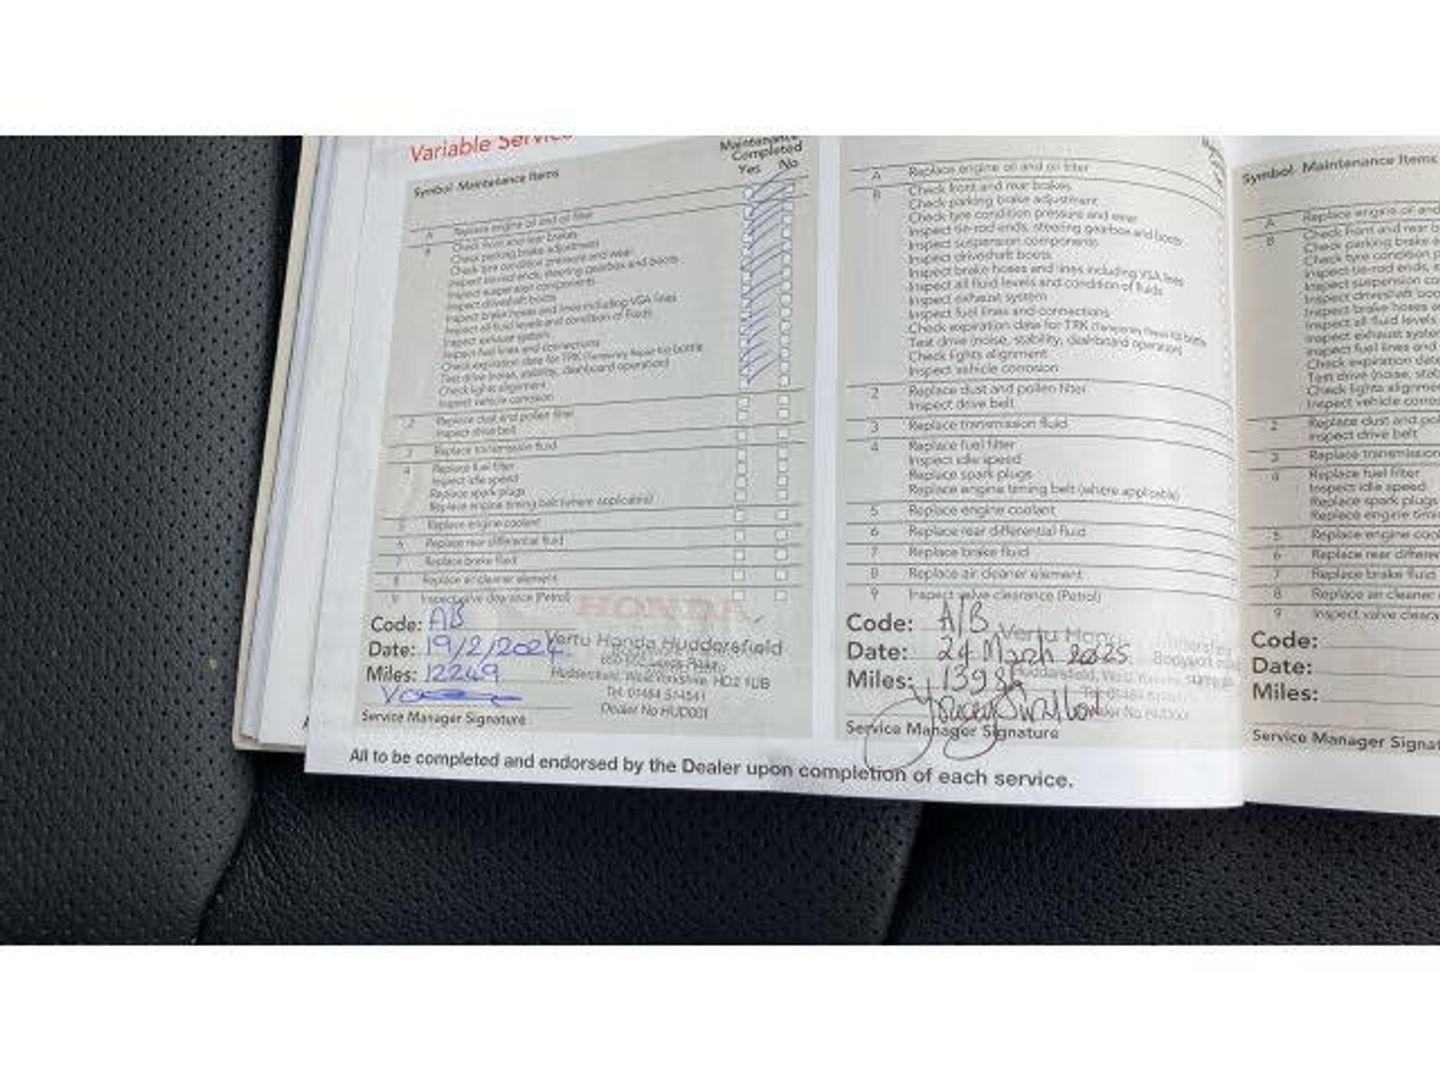 Variable Service
Maintenance
Completed
Yes No
Symbol Maintenance Items
A Replace engine oil and oil filter
B Check front and rear brakes
Check parking brake adjustment
Check tyre condition pressure and wear
Inspect tie-rod ends, steering gearbox and boots
Inspect suspension components
Inspect driveshaft boots
Inspect brake hoses and lines including VSA lines
Inspect all fluid levels and condition of fluids
Inspect exhaust system
Inspect fuel lines and connections
Check expiration date for TRK (Temporary Repair Kit) bottle
Test drive (noise, stability, dashboard operation)
Check lights alignment
Inspect vehicle corrosion
2 Replace dust and pollen filter
Inspect drive belt
3 Replace transmission fluid
4 Replace fuel filter
Inspect idle speed
Replace spark plugs
Replace engine timing belt (where applicable)
5 Replace engine coolant
6 Replace rear differential fluid
7 Replace brake fluid
8 Replace air cleaner element
9 Inspect valve clearance (Petrol)
HONDA
Code: AB
Date: 19/2/2024
Miles: 12249
Vertu Honda Huddersfield
Huddersfield, West Yorkshire HD2 1UB
Tel: 01484 514541
Dealer No HUD001
Service Manager Signature
A Replace engine oil and oil filter
B Check front and rear brakes
Check parking brake adjustment
Check tyre condition pressure and wear
Inspect tie-rod ends, steering gearbox and boots
Inspect suspension components
Inspect driveshaft boots
Inspect brake hoses and lines including VSA lines
Inspect all fluid levels and condition of fluids
Inspect exhaust system
Inspect fuel lines and connections
Check expiration date for TRK (Temporary Repair Kit) bottle
Test drive (noise, stability, dashboard operation)
Check lights alignment
Inspect vehicle corrosion
2 Replace dust and pollen filter
Inspect drive belt
3 Replace transmission fluid
4 Replace fuel filter
Inspect idle speed
Replace spark plugs
Replace engine timing belt (where applicable)
5 Replace engine coolant
6 Replace rear differential fluid
7 Replace brake fluid
8 Replace air cleaner element
9 Inspect valve clearance (Petrol)
Code: A/B
Date: 24 March 2025
Miles:
Vertu Hon
Huddersfield, West Yorks
Dealer No HUD001
Service Manager Signature
All to be completed and endorsed by the Dealer upon completion of each service.
Symbol Maintenance Items
A Replace engine oil and
B Check front and rear b
Check parking brake
Check tyre condition p
Inspect tie-rod ends, s
Inspect suspension co
Inspect driveshaft boo
Inspect brake hoses
Inspect all fluid levels
Inspect exhaust system
Inspect fuel lines and
Check expiration date
Test drive (noise, stab
Check lights alignme
Inspect vehicle corros
2 Replace dust and pol
Inspect drive belt
3 Replace transmission
4 Replace fuel filter
Inspect idle speed
Replace spark plugs
Replace engine timi
5 Replace engine cool
6 Replace rear differen
7 Replace brake fluid
8 Replace air cleaner
9 Inspect valve cleara
Code:
Date:
Miles:
Service Manager Signat